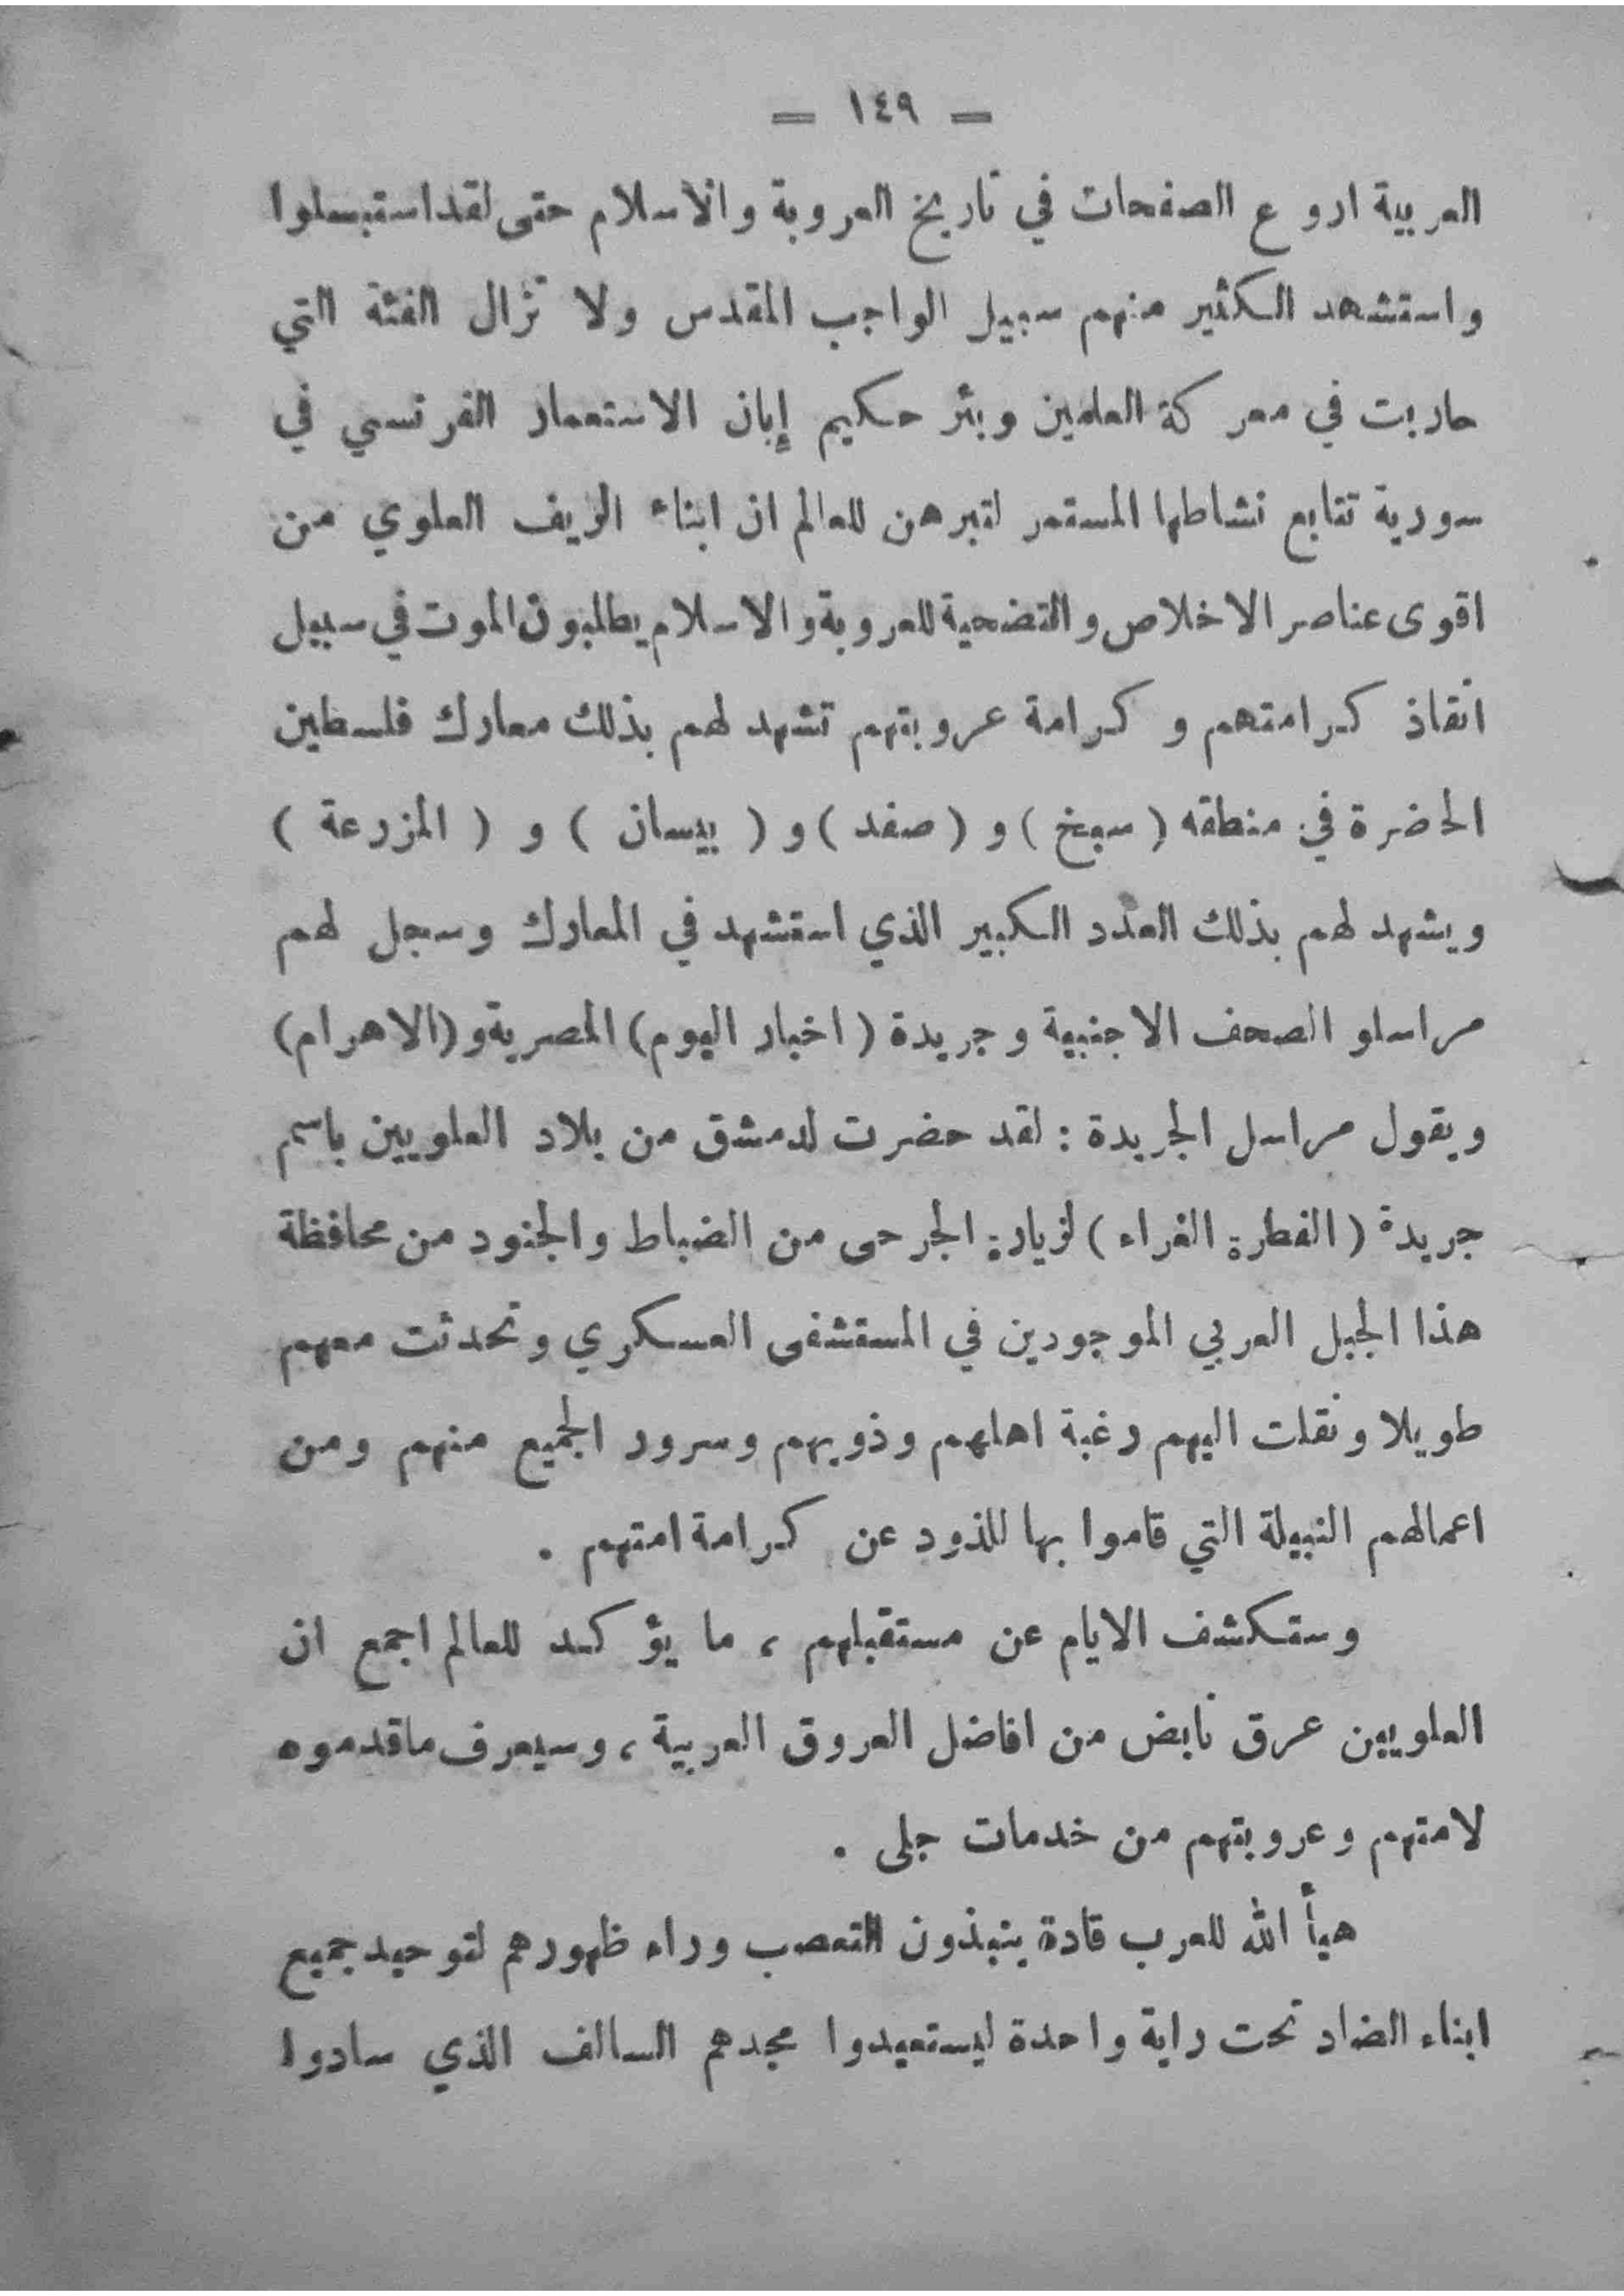 — ١٤٩ —
العربية اروع الصفحات في تاريخ العروبة والاسلام حتى لقد استبسلوا
واستشهد الكثير منهم سبيل الواجب المقدس ولا تزال الفئة التي
حاربت في معركة العلمين وبئر حكيم إبان الاستعمار الفرنسي في
سورية تتابع نشاطها المستمر لتبرهن للعالم ان ابناء الريف العلوي من
اقوى عناصر الاخلاص والتضحية للعروبة والاسلام يطلبون الموت في سبيل
انقاذ كرامتهم وكرامة عروبتهم تشهد لهم بذلك معارك فلسطين
الحضرة في منطقه ( سمخ ) و ( صفد ) و ( بيسان ) و ( المزرعة )
ويشهد لهم بذلك العدد الكبير الذي استشهد في المعارك وسجل لهم
مراسلو الصحف الاجنبية وجريدة ( اخبار اليوم ) المصرية و (الاهرام)
ويقول مراسل الجريدة : لقد حضرت لدمشق من بلاد العلويين باسم
جريدة ( الفطرة الغراء ) لزيارة الجرحى من الضباط والجنود من محافظة
هذا الجبل العربي الموجودين في المستشفى العسكري وتحدثت معهم
طويلا ونقلت اليهم رغبة اهلهم وذويهم وسرور الجميع منهم ومن
اعمالهم النبيلة التي قاموا بها للذود عن كرامة امتهم .
وستكشف الايام عن مستقبلهم ، ما يؤكد للعالم اجمع ان
العلويين عرق نابض من افاضل العروق العربية ، وسيعرف ماقدموه
لامتهم وعروبتهم من خدمات جلى .
هيأ الله للعرب قادة ينبذون التعصب وراء ظهورهم لتوحيد جميع
ابناء الضاد تحت راية واحدة ليستعيدوا مجدهم السالف الذي سادوا